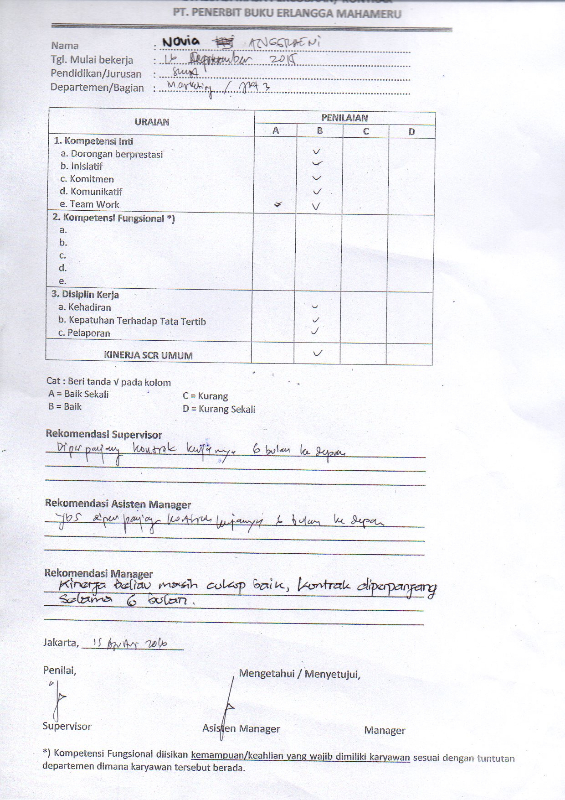 PT. PENERBIT BUKU ERLANGGA MAHAMERU
Nama : Novia ANGGRAENI
Tgl. Mulai bekerja : 16 September 2015
Pendidikan/Jurusan :
Departemen/Bagian : Marketing /
URAIAN PENILAIAN
A B C D
1. Kompetensi Inti
a. Dorongan berprestasi √
b. Inisiatif √
c. Komitmen √
d. Komunikatif √
e. Team Work √
2. Kompetensi Fungsional *)
a.
b.
c.
d.
e.
3. Disiplin Kerja
a. Kehadiran √
b. Kepatuhan Terhadap Tata Tertib √
c. Pelaporan √
KINERJA SCR UMUM √
Cat : Beri tanda √ pada kolom
A = Baik Sekali C = Kurang
B = Baik D = Kurang Sekali
Rekomendasi Supervisor
Diperpanjang kontrak kerjanya 6 bulan ke depan
Rekomendasi Asisten Manager
ybs diperpanjang kontrak kerjanya 6 bulan ke depan
Rekomendasi Manager
Kinerja beliau masih cukup baik, kontrak diperpanjang
selama 6 bulan.
Jakarta, 15
Penilai, Mengetahui / Menyetujui,
Supervisor Asisten Manager Manager
*) Kompetensi Fungsional diisikan kemampuan/keahlian yang wajib dimiliki karyawan sesuai dengan tuntutan
departemen dimana karyawan tersebut berada.